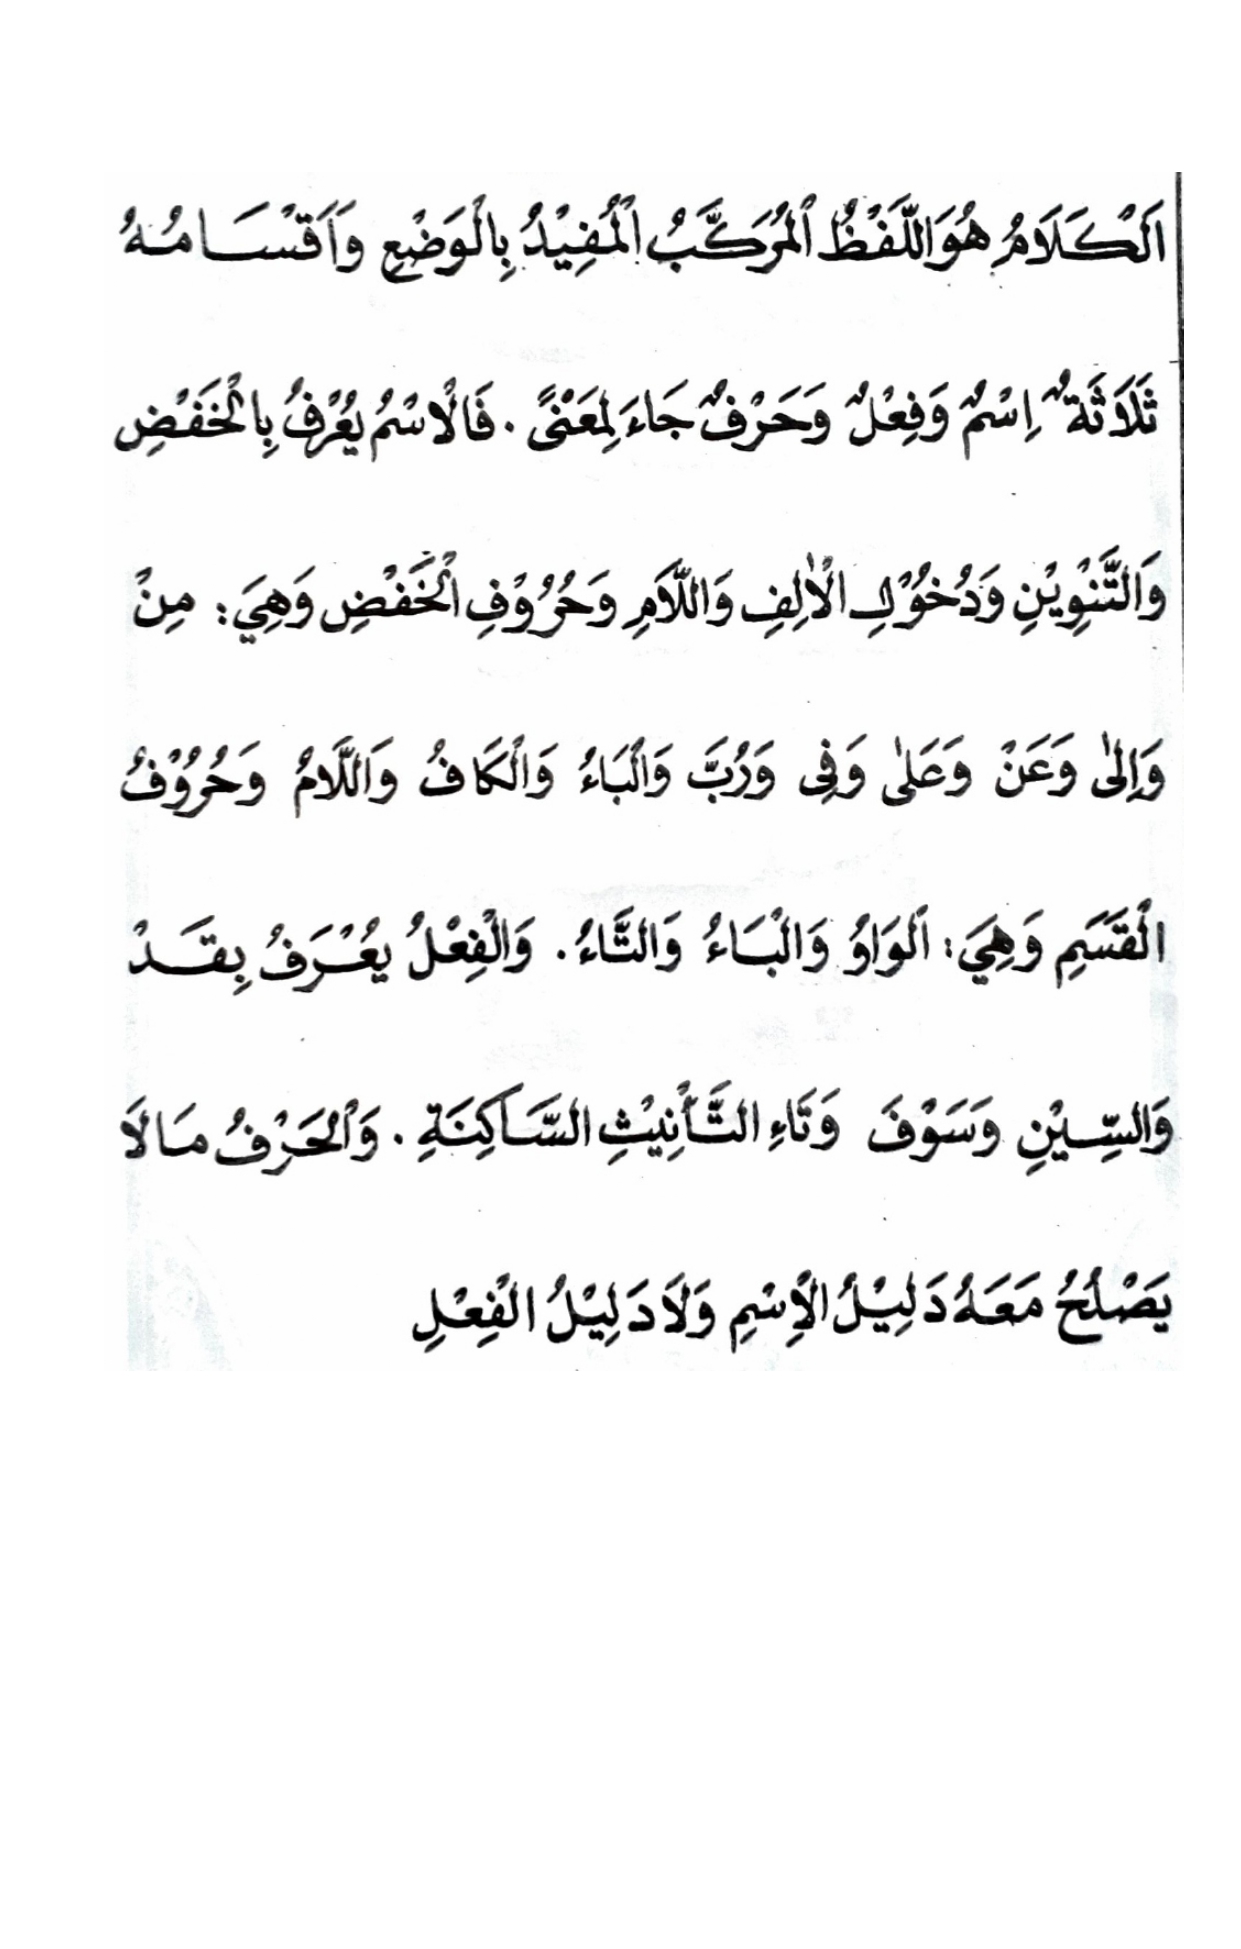 اَلْكَلَامُ هُوَاللَّفْظُ الْمُرَكَّبُ الْمُفِيْدُ بِالْوَضْعِ وَاَقْسَامُهُ
ثَلَاثَةٌ اِسْمٌ وَفِعْلٌ وَحَرْفٌ جَاءَ لِمَعْنًى . فَالْاسْمُ يُعْرَفُ بِالْخَفْضِ
وَالتَّنْوِيْنِ وَدُخُوْلِ الْاَلِفِ وَاللَّامِ وَحُرُوْفِ الْخَفْضِ وَهِيَ : مِنْ
وَاِلٰى وَعَنْ وَعَلٰى وَفِى وَرُبَّ وَالْبَاءُ وَالْكَافُ وَاللَّامُ وَحُرُوْفُ
الْقَسَمِ وَهِيَ : اَلْوَاوُ وَالْبَاءُ وَالتَّاءُ . وَالْفِعْلُ يُعْرَفُ بِقَدْ
وَالسِّيْنِ وَسَوْفَ وَتَاءِ التَّأْنِيْثِ السَّاكِنَةِ . وَالْحَرْفُ مَالَا
يَصْلُحُ مَعَهُ دَلِيْلُ الْاِسْمِ وَلَا دَلِيْلُ الْفِعْلِ